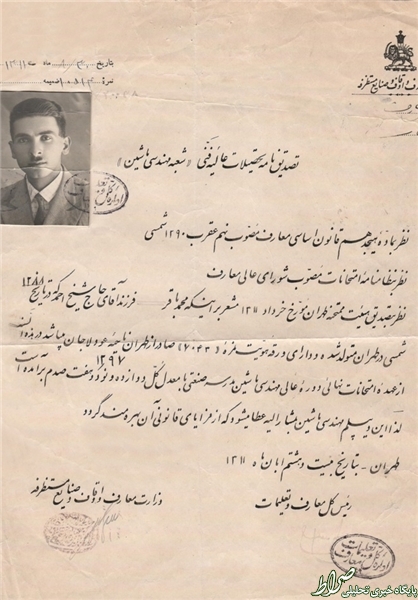 بتاریخ ماه ۱۳۱۱
نمره ضمیمه
معارف و اوقاف و صنایع مستظرفه
تصدیق نامه تحصیلات عالیه فنی «شعبه مهندسی ماشین»
نظر بماده هیجدهم قانون اساسی معارف مصوب نهم عقرب ۱۲۹۰ شمسی
نظر بنظامنامه امتحانات مصوب شورای عالی معارف
نظر بتصدیق هیئت ممتحنه طهران مورخ خرداد ۱۳۱۱ مشعر بر اینکه محمد باقر فرزند آقای حاج شیخ احمد که در تاریخ ۱۲۸۸
شمسی در طهران متولد شده و دارای ورقه هویت نمره (۷۰۴۳) صادر از طهران ناحیه عودلاجان میباشد در
از عهدهٔ امتحانات نهائی دورهٔ عالی مهندسی ماشین مدرسه صنعتی بامعدل کل دوازده و نود و هفت صدم برآمده است ۱۲٫۹۷
لذا این دیپلم مهندسی ماشین بمشارالیه عطا میشود که از مزایای قانونی آن بهره‌مند گردد
طهران - بتاریخ بیست و هشتم ابان ماه ۱۳۱۱
رئیس کل معارف و تعلیمات
وزارت معارف و اوقاف و صنایع مستظرفه
صراط
پایگاه خبری تحلیلی